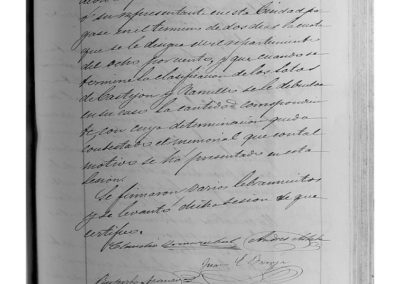 ó su representante en esta Ciudad pa
gase en el termino de dos dias la cuota
que se le designa en el repartimiento
del ocho por ciento, y que cuando se
termine la clasificacion de los solas
de Castejon y Ramillo se le debulva
en su caso la cantidad correspondien
te, con cuya determinacion queda
contestado el memorial que con tal
motivo se há presentado en esta
sesion.
Se firmaron varios libramientos
y se levantó dicha sesion de que
certifico.
Claudio
Juan